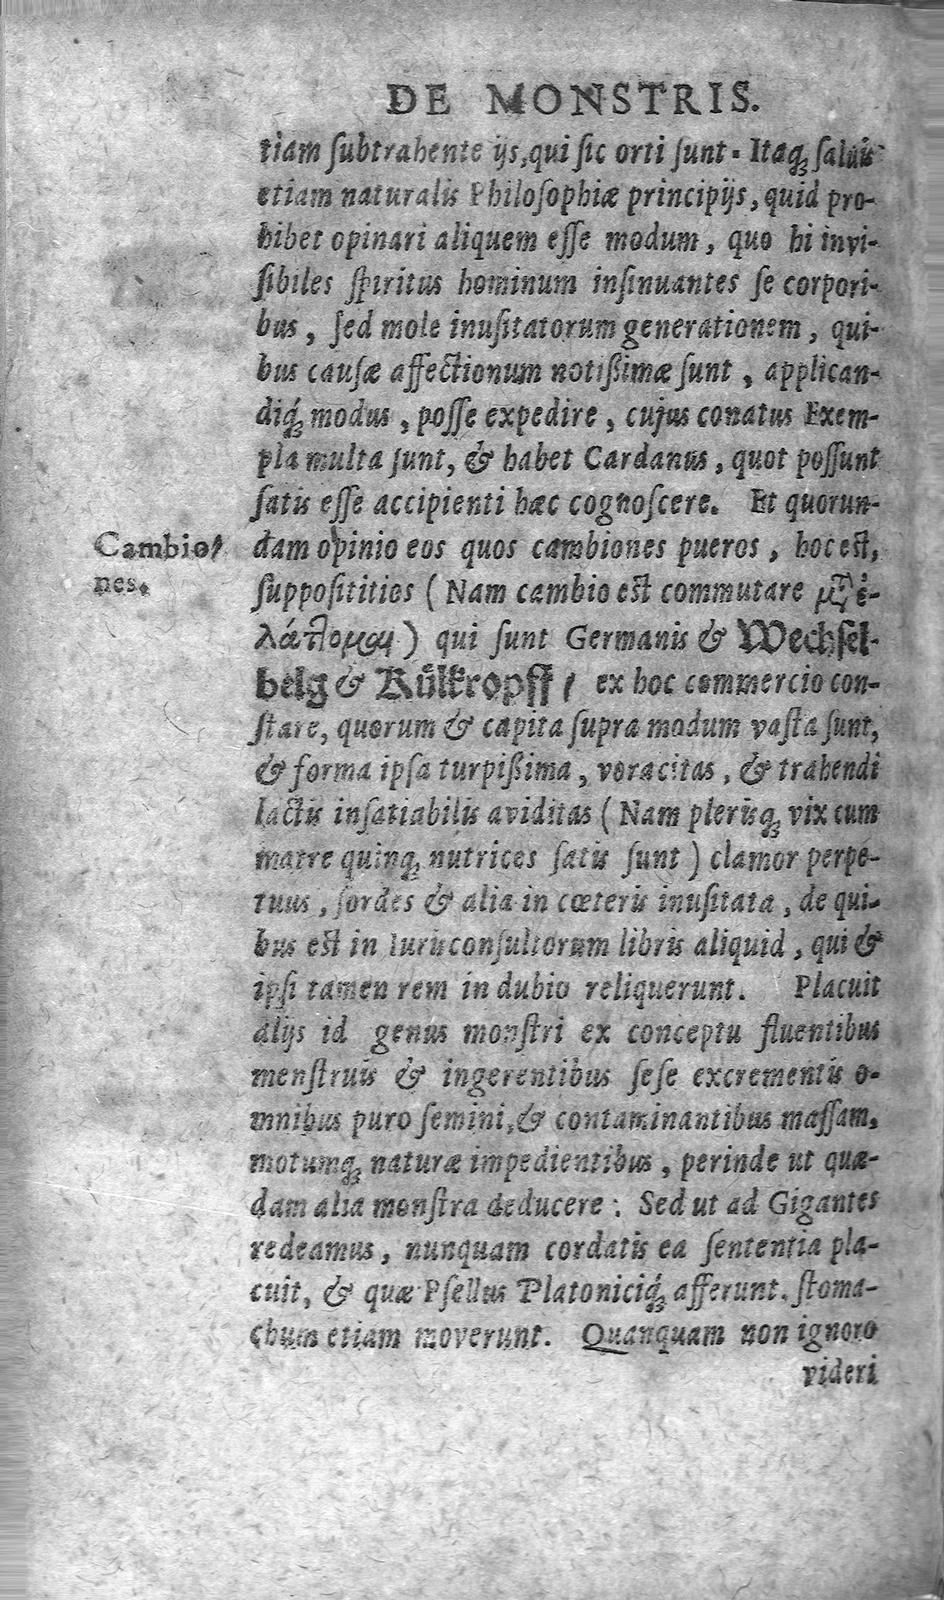 DE MONSTRIS.
tiam ſubtrahente ijs, qui ſic orti ſunt. Itaq́; ſaluis
etiam naturalis Philoſophiæ principijs, quid pro-
hibet opinari aliquem eſſe modum, quo hi invi-
ſibiles ſpiritus hominum inſinuantes ſe corpori-
bus, ſed mole inuſitatorum generationem, qui-
bus cauſæ affectionum notißimæ ſunt, applican-
diq́; modus, poſſe expedire, cujus conatus Exem-
pla multa ſunt, & habet Cardanus, quot poſſunt
ſatis eſſe accipienti hæc cognoſcere. Et quorun-
Cambio/
nes.
dam opinio eos quos cambiones pueros, hoc eſt,
ſuppoſititios (Nam cambio eſt commutare
) qui ſunt Germanis & Wechſel-
belg & Külkropff / ex hoc commercio con-
ſtare, quorum & capita ſupra modum vaſta ſunt,
& forma ipſa turpißima, voracitas, & trahendi
lactis inſatiabilis aviditas (Nam plerisq; vix cum
matre quinq; nutrices ſatis ſunt) clamor perpe-
tuus, ſordes & alia in cœteris inuſitata, de qui-
bus eſt in Iurisconſultorum libris aliquid, qui &
ipſi tamen rem in dubio reliquerunt. Placuit
alijs id genus monſtri ex conceptu fluentibus
menſtruis & ingerentibus ſeſe excrementis o-
mnibus puro ſemini, & contaminantibus maſſam,
motumq; naturæ impedientibus, perinde ut quæ-
dam alia monſtra deducere: Sed ut ad Gigantes
redeamus, nunquam cordatis ea ſententia pla-
cuit, & quæ Pſellus Platoniciq́; afferunt. ſtoma-
chum etiam moverunt. Quanquam non ignoro
videri